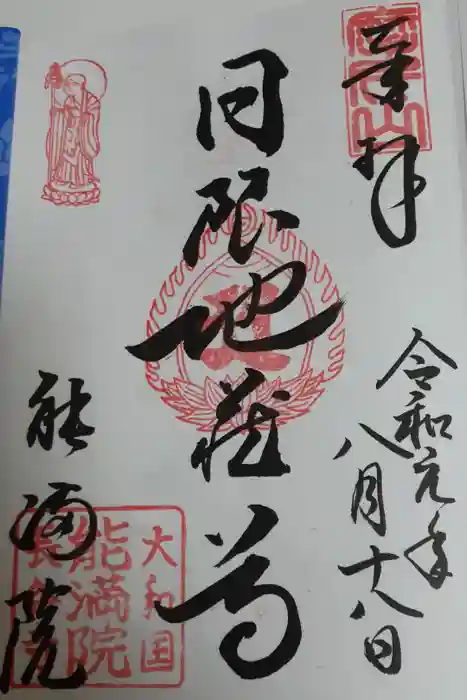 奉拝
令和元年
八月十八日
日限地蔵尊
能満院
大和国
能満院
長谷寺